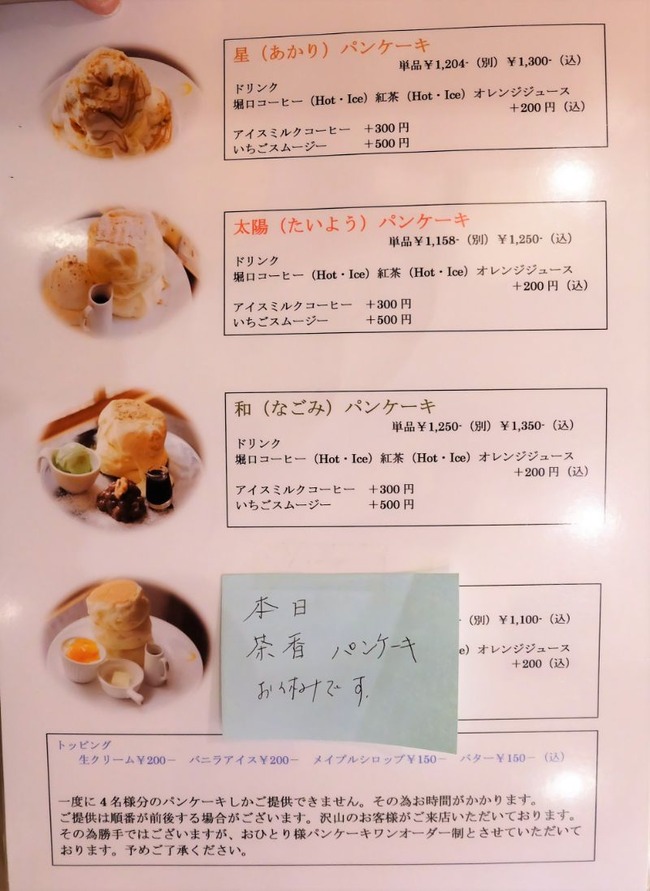 星（あかり）パンケーキ
単品￥1,204-（別）￥1,300-（込）
ドリンク
堀口コーヒー（Hot・Ice）紅茶（Hot・Ice）オレンジジュース
＋200円（込）
アイスミルクコーヒー　＋300円
いちごスムージー　＋500円
太陽（たいよう）パンケーキ
単品￥1,158-（別）￥1,250-（込）
ドリンク
堀口コーヒー（Hot・Ice）紅茶（Hot・Ice）オレンジジュース
＋200円（込）
アイスミルクコーヒー　＋300円
いちごスムージー　＋500円
和（なごみ）パンケーキ
単品￥1,250-（別）￥1,350-（込）
ドリンク
堀口コーヒー（Hot・Ice）紅茶（Hot・Ice）オレンジジュース
＋200円（込）
アイスミルクコーヒー　＋300円
いちごスムージー　＋500円
本日
茶香 パンケーキ
お休みです.
別）￥1,100-（込）
e）オレンジジュース
＋200（込）
トッピング
生クリーム￥200－　バニラアイス￥200－　メイプルシロップ￥150－　バター￥150－（込）
一度に4名様分のパンケーキしかご提供できません。その為お時間がかかります。
ご提供は順番が前後する場合がございます。沢山のお客様がご来店いただいております。
その為勝手ではございますが、おひとり様パンケーキワンオーダー制とさせていただいて
おります。予めご了承ください。